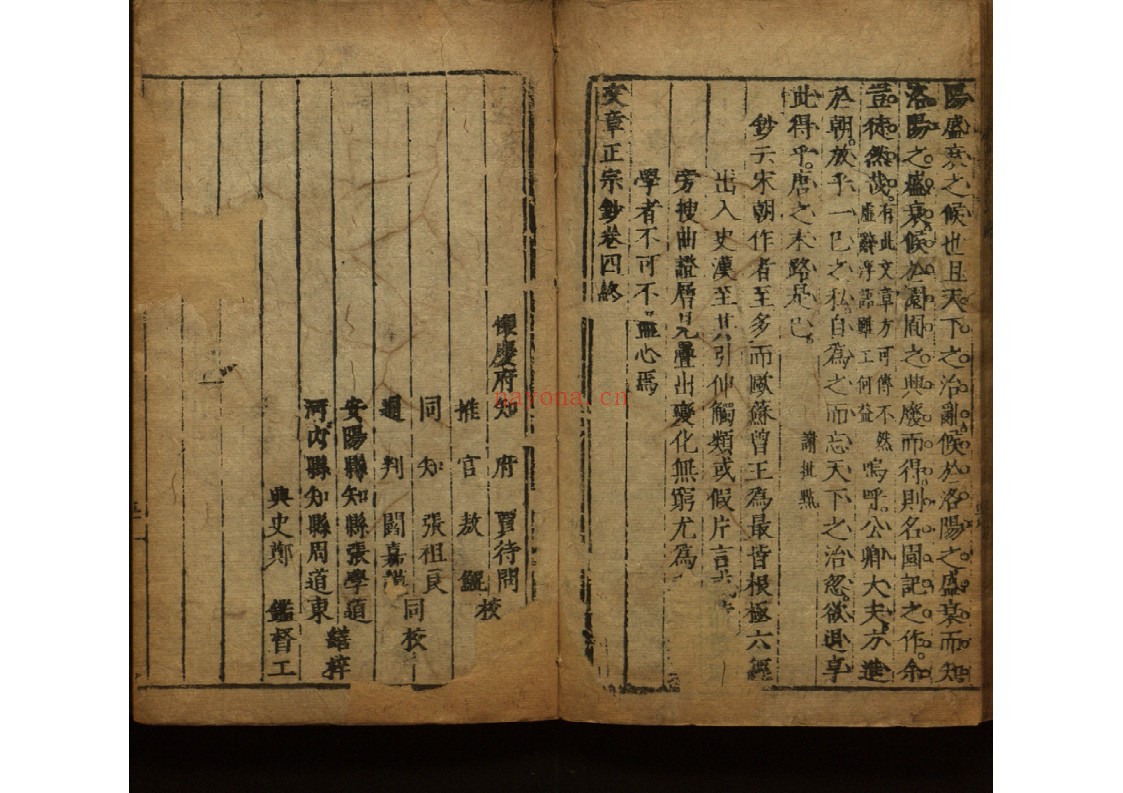 陽盛衰之候也且天下之治亂候於洛陽之盛衰而知
洛陽之盛衰候於園囿之興廢而得則名園記之作余
豈徒然哉有此文章方可傳不然虛辭浮語雖工何益嗚呼公卿大夫方進
於朝放乎一己之私自為之而忘天下之治忽欲退享
此得乎唐之末路是已 謝批點
鈔云宋朝作者至多而歐蘇曾王為最皆根極六經
出入史漢至其引伸觸類或假片言
旁搜曲證層見疊出變化無窮尤為
學者不可不盡心焉
文章正宗鈔卷四終
懷慶府知府賈待問校
推官敖鯤
同知張祖良同校
通判閻嘉
安陽縣知縣張學顏繕梓
河內縣知縣周道東
典史鄭鑑督工
narona.cn